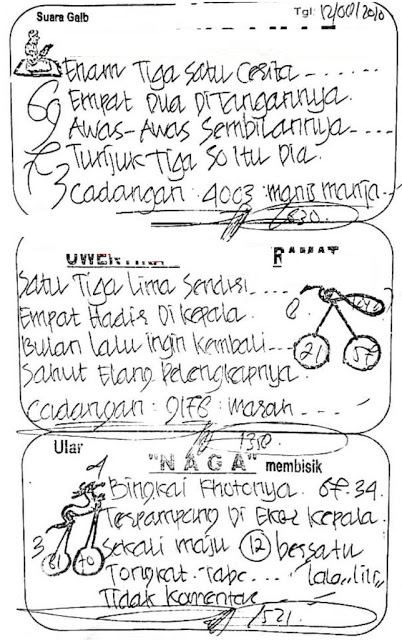 Suara Gaib
Tgl: 12/00/2010
Enam Tiga Satu Cerita - - - - -
Empat Dua Di Tangannya.
Awas-Awas Sembilannya - - - -
Tunjuk Tiga So Itu Dia.
Cadangan : 4003 : manis manja - -
Satu Tiga Lima Sendiri - - - -
Empat Hadir Di kepala.
Bulan lalu ingin kembali - - -
21 57
Sahut Elang Pelengkapnya.
Cadangan : 9178 : marah - - - -
1350.
Ular "NAGA" membisik
Bingkai Photonya. 67.34.
Terpampang Di Ekor kepala.
3
Sekali maju 12 bersatu
Tongkat
Tidak Komentar
1521.